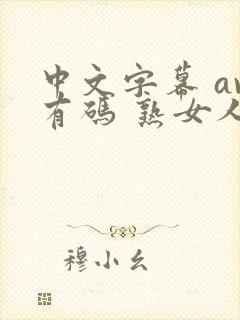 中文字幕 av
有碼 熟女人
穆小幺